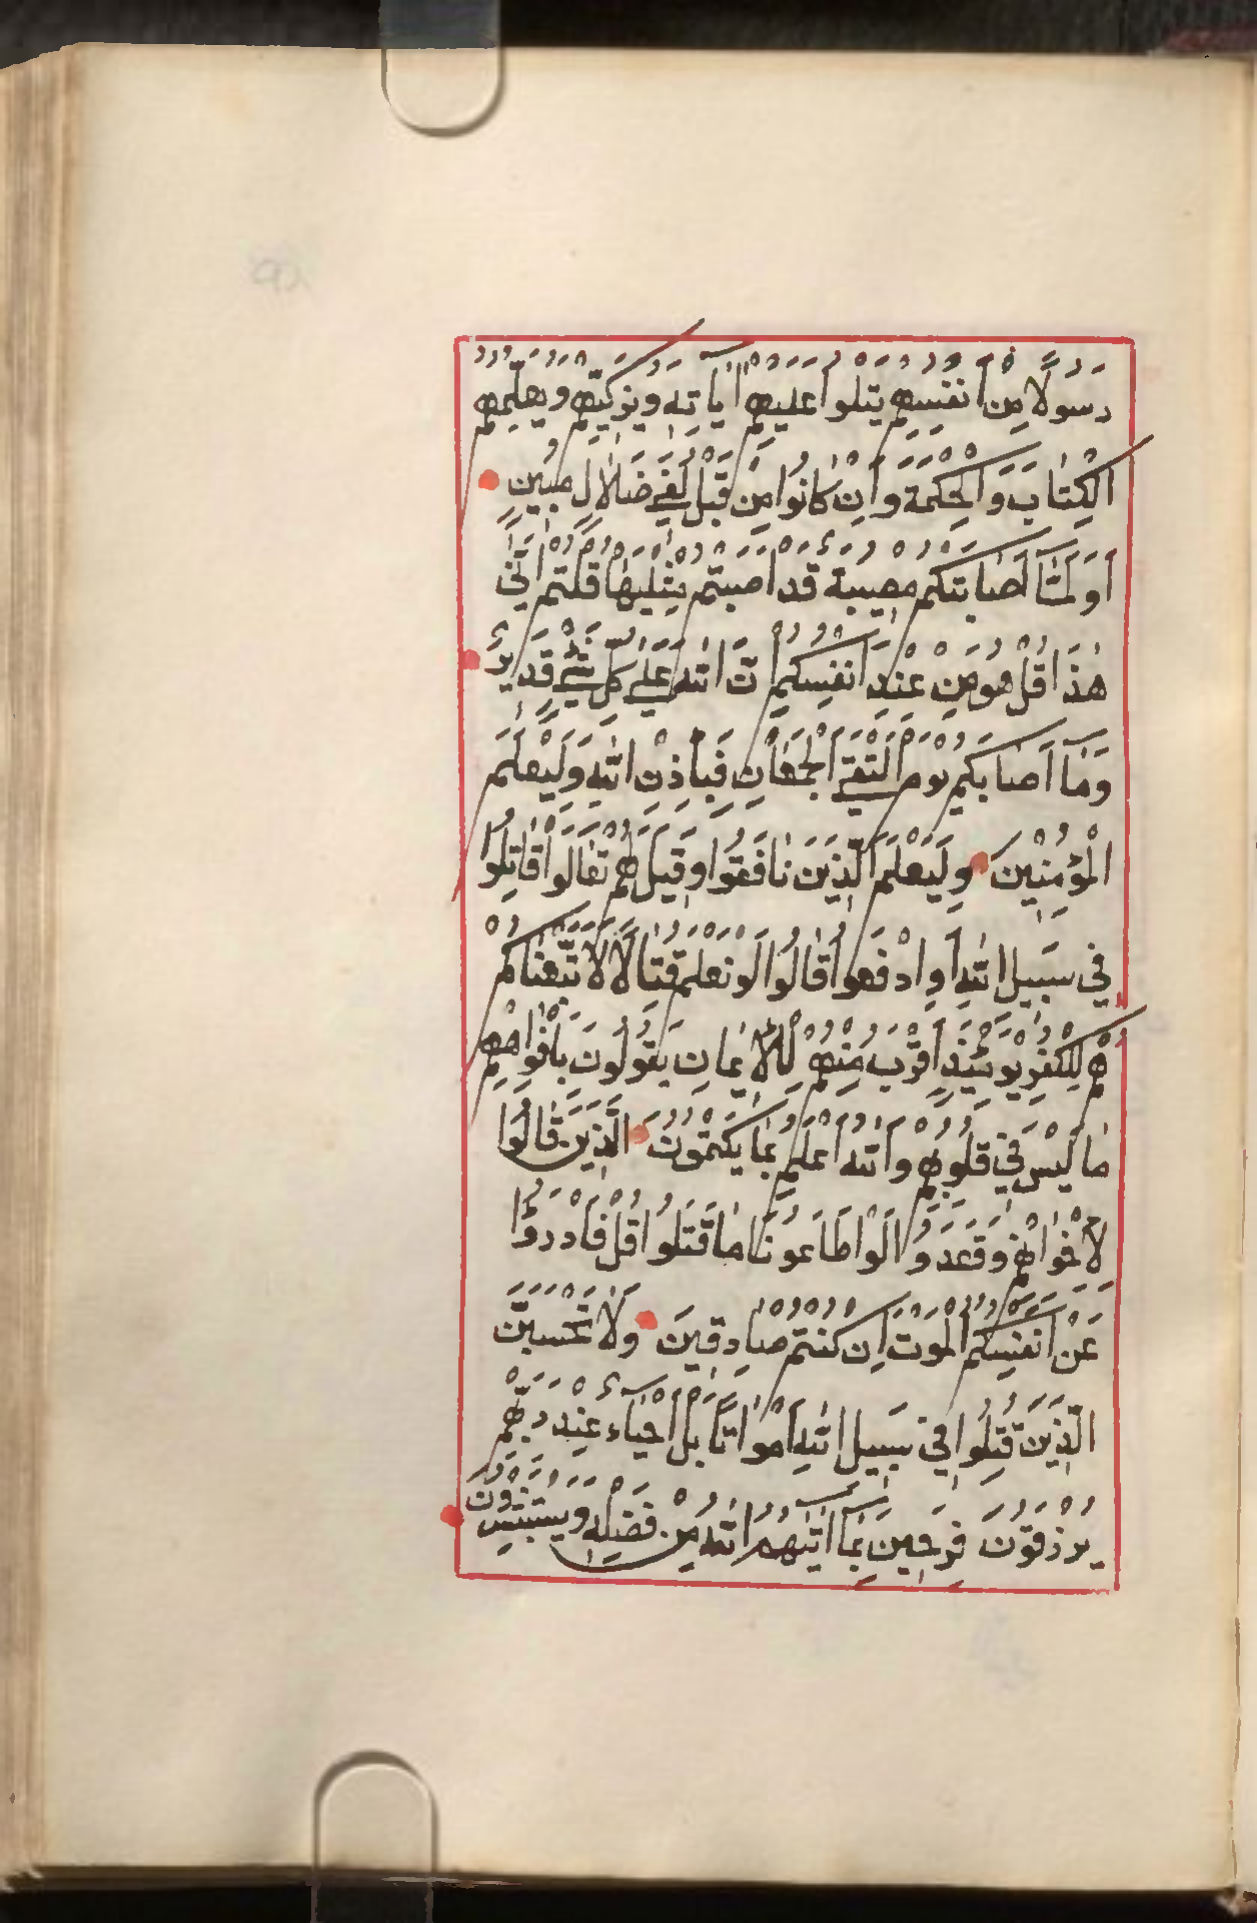 رَسُولًا مِنْ أَنْفُسِهِمْ يَتْلُوا عَلَيْهِمْ اٰيَاتِهِ وَيُزَكِّيهِمْ وَيُعَلِّمُهُمُ
الْكِتَابَ وَالْحِكْمَةَ وَاِنْ كَانُوا مِنْ قَبْلُ لَفِي ضَلَالٍ مُبِينٍ
اَوَلَمَّٓا اَصَابَتْكُمْ مُصِيبَةٌ قَدْ اَصَبْتُمْ مِثْلَيْهَا قُلْتُمْ اَنّٰى
هٰذَا قُلْ هُوَ مِنْ عِنْدِ اَنْفُسِكُمْ اِنَّ اللّٰهَ عَلٰى كُلِّ شَيْءٍ قَدِيرٌ
وَمَٓا اَصَابَكُمْ يَوْمَ الْتَقَى الْجَمْعَانِ فَبِاِذْنِ اللّٰهِ وَلِيَعْلَمَ
الْمُؤْمِنِينَ وَلِيَعْلَمَ الَّذِينَ نَافَقُوا وَقِيلَ لَهُمْ تَعَالَوْا قَاتِلُوا
فِي سَبِيلِ اللّٰهِ اَوِ ادْفَعُوا قَالُوا لَوْ نَعْلَمُ قِتَالًا لَاتَّبَعْنَاكُمْ
هُمْ لِلْكُفْرِ يَوْمَئِذٍ اَقْرَبُ مِنْهُمْ لِلْاِيمَانِ يَقُولُونَ بِاَفْوَاهِهِمْ
مَا لَيْسَ فِي قُلُوبِهِمْ وَاللّٰهُ اَعْلَمُ بِمَا يَكْتُمُونَ الَّذِينَ قَالُوا
لِاِخْوَانِهِمْ وَقَعَدُوا لَوْ اَطَاعُونَا مَا قُتِلُوا قُلْ فَادْرَؤُا
عَنْ اَنْفُسِكُمُ الْمَوْتَ اِنْ كُنْتُمْ صَادِقِينَ وَلَا تَحْسَبَنَّ
الَّذِينَ قُتِلُوا فِي سَبِيلِ اللّٰهِ اَمْوَاتًا بَلْ اَحْيَٓاءٌ عِنْدَ رَبِّهِمْ
يُرْزَقُونَ فَرِحِينَ بِمَٓا اٰتٰيهُمُ اللّٰهُ مِنْ فَضْلِهِ وَيَسْتَبْشِرُونَ